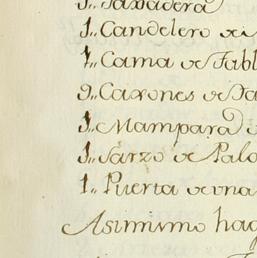 1,, Candelero de
1,, Cama de Tabl
9,, Caxones de Ta
1,, Mampara
1,, Sarzo de Palo
1,, Puerta de una
Asimismo hag